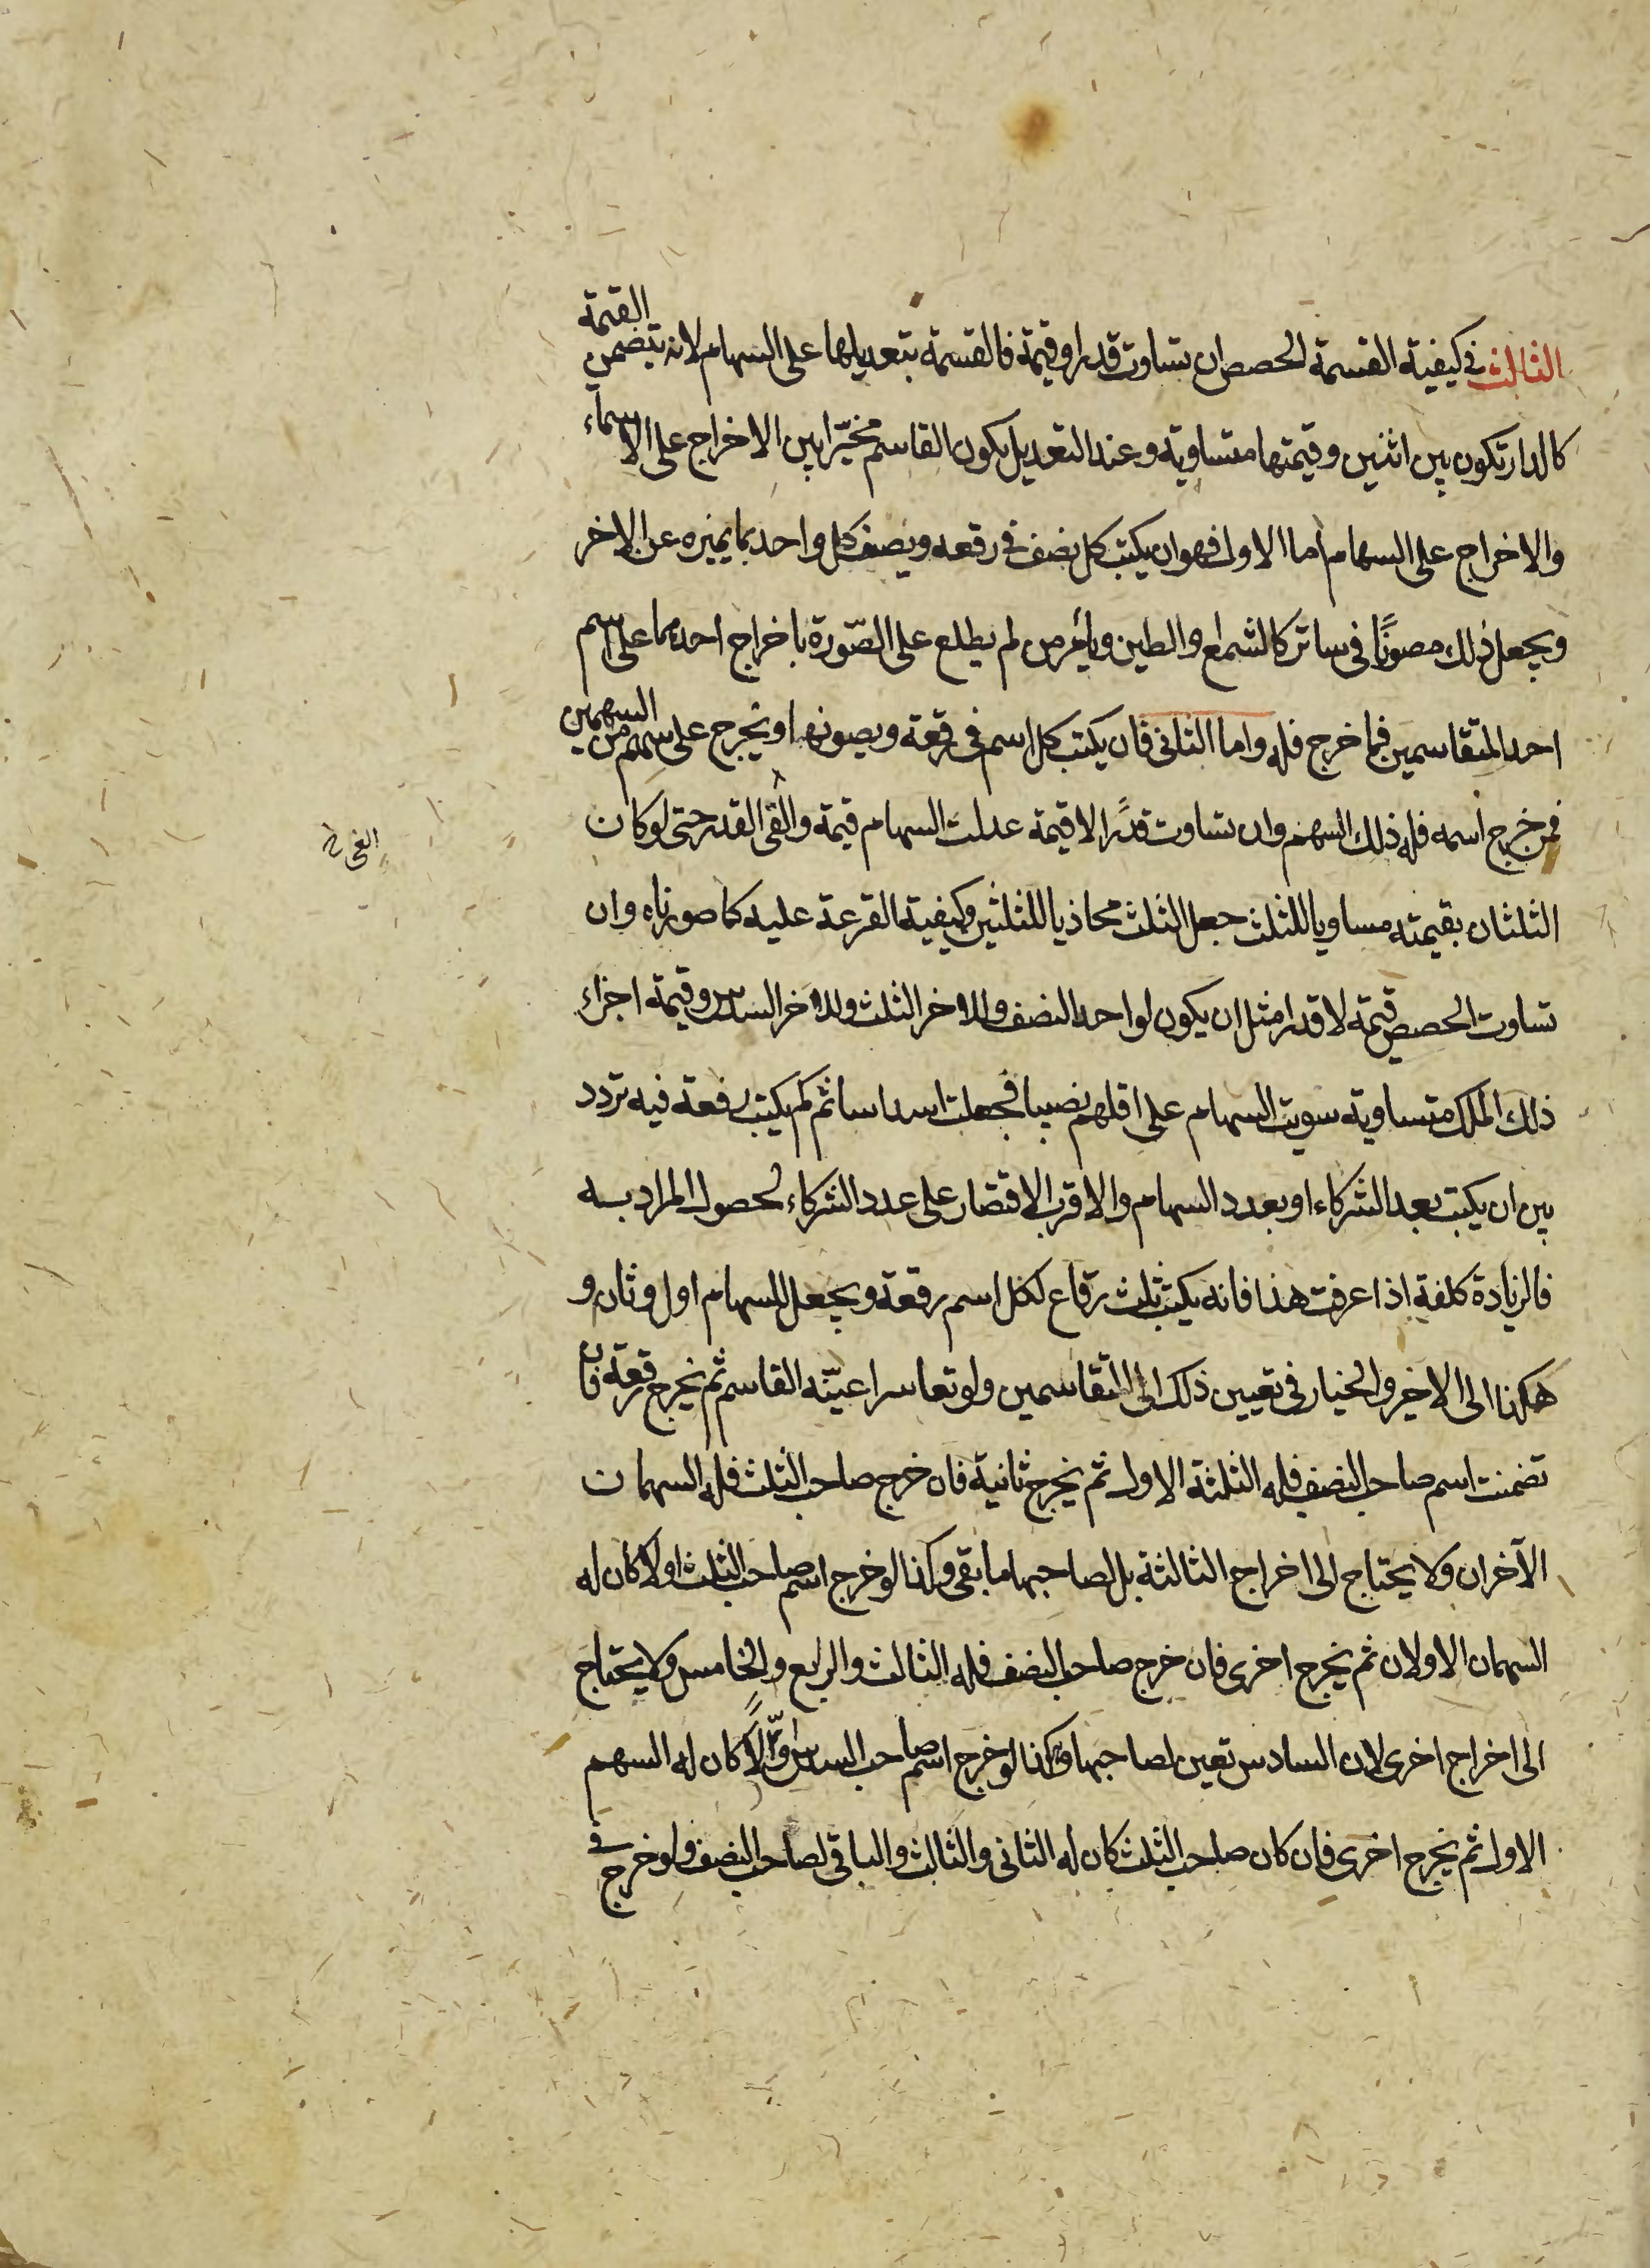 الثالث في كيفية القسمة الحصص ان تساوت قدرا وقيمة فالقسمة بتعديلها على السهام لانه يتضمن القيمة
كالدار تكون بين اثنين وقيمتها متساوية وعند التعديل يكون القاسم مخيّرا بين الاخراج على الاسماء
والاخراج على السهام اما الاول فهو ان يكتب كل نصف في رقعه ويصف كل واحد بما يميزه عن الاخر
ويجعل ذلك مصونًا في ساتر كالشمع او الطين ويأمر من لم يطلع على الصّورة باخراج احدهما على اسم
احد المتقاسمين فما خرج فله واما الثاني فان يكتب كل اسم في رقعة ويصونها ويخرج على سهم من السهمين
فمن خرج اسمه فله ذلك السهم وان تساوت قدرًا لا قيمة عدلت السهام قيمة والقى القدر حتى لو كان
الغى خ
الثلثان بقيمته مساويا للثلث جعل الثلث محاذيا للثلثين وكيفية القرعة عليه كما صورناه وان
تساوت الحصص قيمة لا قدرا مثل ان يكون لواحد النصف وللاخر الثلث وللاخر السدس وقيمة اجزاء
ذلك الملك متساوية سويت السهام على اقلهم نصيبا فجعلت اسداسا ثم كم يكتب رقعة فيه تردد
بين ان يكتب بعد الشركاء او بعدد السهام والاقرب الاقتصار على عدد الشركاء لحصول المراد به
فالزيادة كلفة اذا عرفت هذا فانه يكتب ثلث رقاع لكل اسم رقعة ويجعل للسهام اول وثان و
هكذا الى الاخير والخيار في تعيين ذلك الى المتقاسمين ولو تعاسرا عيّنه القاسم ثم يخرج رقعة فان
تضمنت اسم صاحب النصف فله الثلثة الاول ثم يخرج ثانية فان خرج صاحب الثلث فله السهمان
الآخران ولا يحتاج الى اخراج الثالثة بل لصاحبها ما بقي وكذا لو خرج اسم صاحب الثلث اولا كان له
السهمان الاولان ثم يخرج اخرى فان خرج صاحب النصف فله الثالث والرابع والخامس ولا يحتاج
الى اخراج اخرى لان السادس تعين لصاحبها وكذا لو خرج اسم صاحب السدس اوّلًا كان له السهم
الاول ثم يخرج اخرى فان كان صاحب الثلث كان له الثاني والثالث والباقي لصاحب النصف ولو خرج في